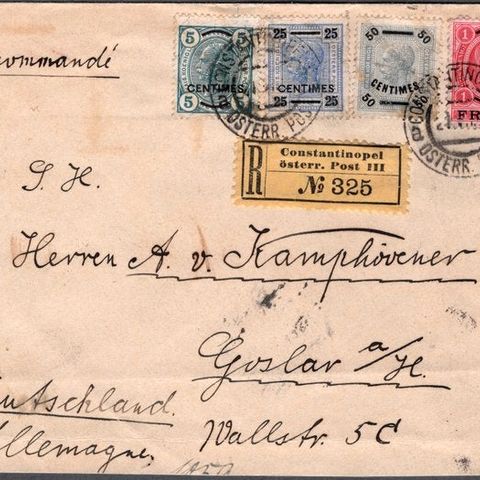 ecommandé
5 5
CENTIMES
5 5
25 25
CENTIMES
25 25
50 50
CENTIMES
50 50
1
1
FR
CONSTANTINOPEL
ÖSTERR. POST
CONSTANTINO
ÖSTERR. P
R
Constantinopel
österr. Post III
No 325
S. H.
Herren A. v. Kamphövener
Goslar a/H.
Wallstr. 5C
utschland.
llemagne.